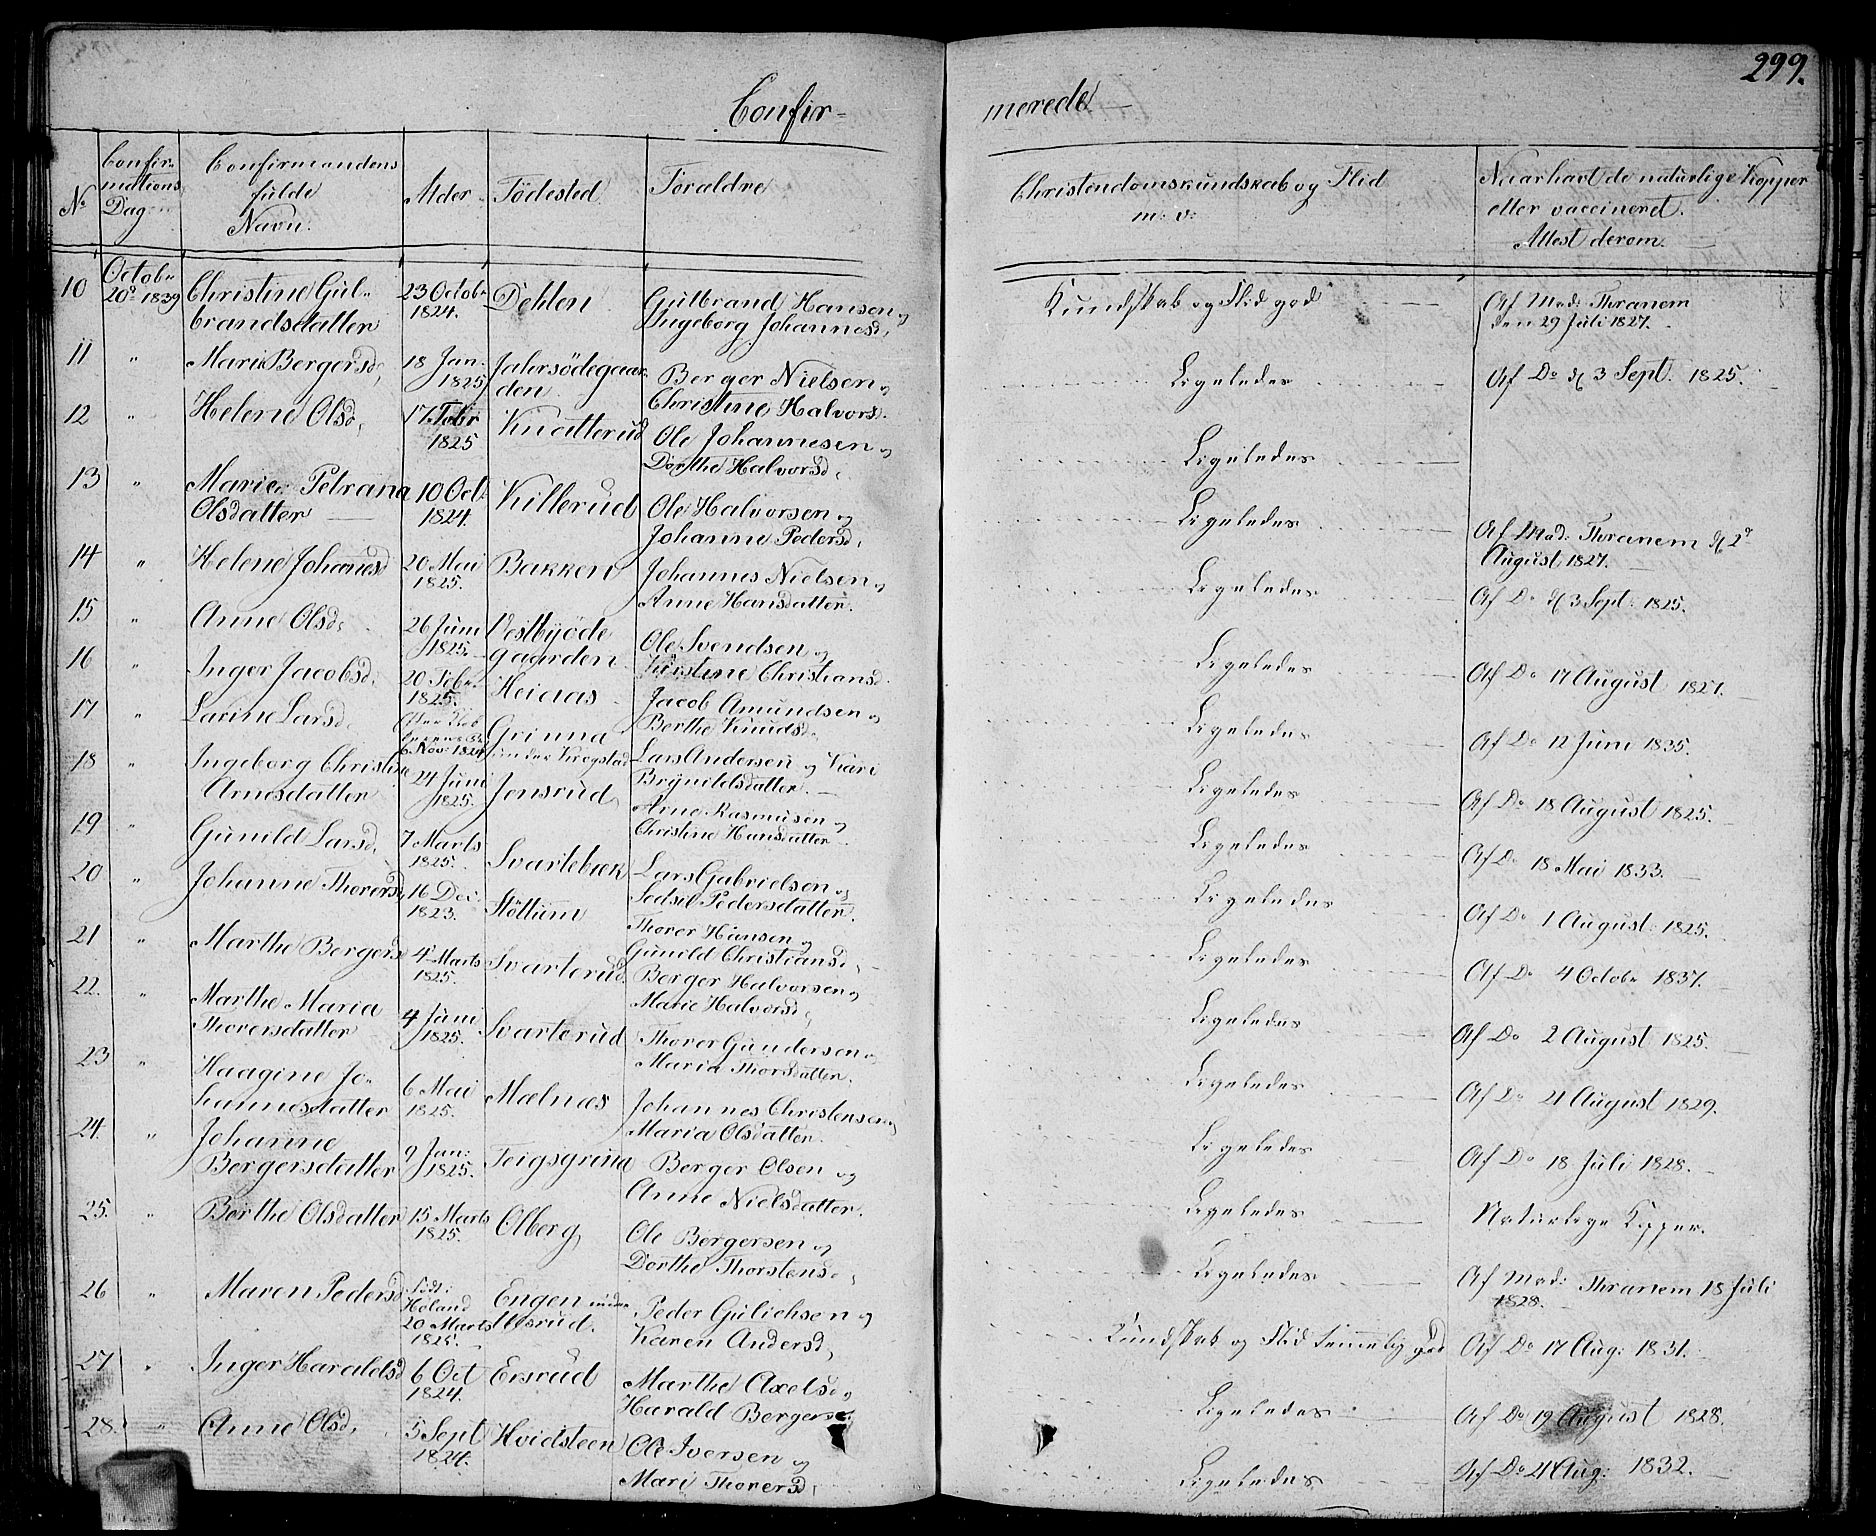 299.
Confir-
merede
No
Confir-
mations
Dag
Confirmandens
fulde
Navn.
Alder
Födested
Foraldre
Christendomskundskab og Flid
m: v:
Naar havt de naturlige Kopper
eller vaccineret.
Attest derom.
10 Octob. 20de 1839 Christine Gul-
brandsdatter 23 Octobr 1824. Dehlen Gulbrand Hansen og
Ingeborg Johannesd. Kundskab og Flid god Af Mad: Thranem
den 29 Juli 1827.
11 " Mari Bergersd. 18 Jan: 1825 Jahrsödegaar-
den Berger Nielsen og
Christine Halvorsd. Ligeledes Af Do d 3 Sept. 1825.
12 " Helene Olsd. 17 Febr 1825 Knatterud Ole Johannesen og
Dorthe Halvorsd. Ligeledes
13 " Marie Petrana
Olsdatter 10 Oct. 1824. Killerud Ole Halvorsen og
Johanne Pedersd. Ligeledes Af Mad: Thranem d 2
August 1827.
14 " Helene Johannesd 20 Mai 1825. Bakken Johannes Nielsen og
Anne Hansdatter. Ligeledes Af Do d 3 Sept: 1825.
15 " Anne Olsd. 26 Juni 1825. Vestbyöde
gaarden Ole Svendsen og
Kristine Christiansd. Ligeledes Af Do 17 August 1827.
16 " Inger Jacobsd. 20 Febr. 1825. Heiaas Jacob Amundsen og
Berthe Knudsd. Ligeledes Af Do 12 Juni 1835.
17 " Larine Larsd. 6 Nov: 1824 Grinna
under Krogstad Lars Andersen og Kari
Brynildsdatter. Ligeledes Af Do 18 August 1825.
18 " Ingeborg Christine
Arnesdatter 24 Juni 1825. Jonsrud Arne Rasmusen og
Christine Hansdatter Ligeledes Af Do 18 Mai 1833.
19 " Gunild Larsd. 7 Marts 1825. Svartebæk Lars Gabrielsen og
Sedsil Pedersdatter. Ligeledes Af Do 1 August: 1825.
20 " Johanne Thorersd 16 Dec. 1823. Stöttum Thorer Hansen og
Gunild Christiansd. Ligeledes Af Do 4 Octobr 1837.
21 " Marthe Bergersd 4 Marts 1825. Svarterud Berger Halvorsen og
Marie Halvorsd. Ligeledes Af Do 2 August 1825.
22. " Marthe Maria
Thorersdatter 4 Juni 1825. Svarterud Thorer Gundersen og
Maria Thorsdatter. Ligeledes Af Do 21 August 1829.
23 " Haagine Jo-
hannesdatter 6 Mai 1825. Mælnæs Johannes Christensen og
Maria Olsdatter. Ligeledes Af Do 18 Juli 1828.
24. " Johanne
Bergersdatter 9 Jan: 1825. Teigsgrina Berger Olsen og
Anne Nielsdatter. Ligeledes Naturlige Kopper.
25. " Berthe Olsdatter 15 Marts 1825. Olberg Ole Bergersen og
Dorthe Thorstensd. Ligeledes Af Mad: Thranem 18 Juli
1828.
26 " Maren Pedersd Födt: Höland
20 Marts 1825. Engen under
Ursrud. Peder Guliehsen og
Karen Andersd. Kundskab og Flid temmelig god Af Do 17 Aug: 1831.
27 " Inger Haraldsd 6 Oct 1824. Ersrud Marthe Axelsd og
Harald Bergersen Ligeledes Af Do 19 August 1828.
28. " Anne Olsd. 5 Sept 1824. Hvidsteen Ole Iversen og
Mari Thorersd. Ligeledes Af Do 4 Aug: 1832.